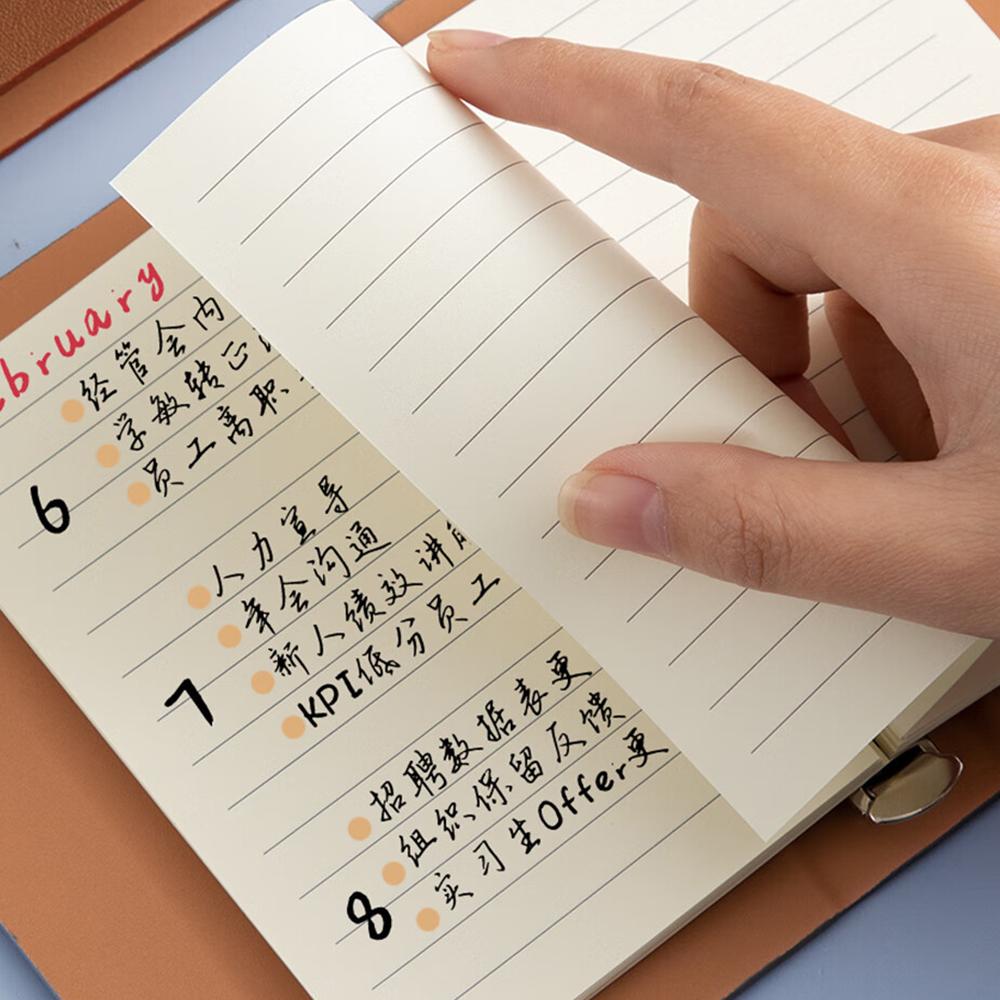 ebruary
6
经管会内
学敏转正
员工离职
7
人力宣导
年会沟通
新人绩效讲
KPI低分员工
8
招聘数据表更
组织保留反馈
实习生Offer更